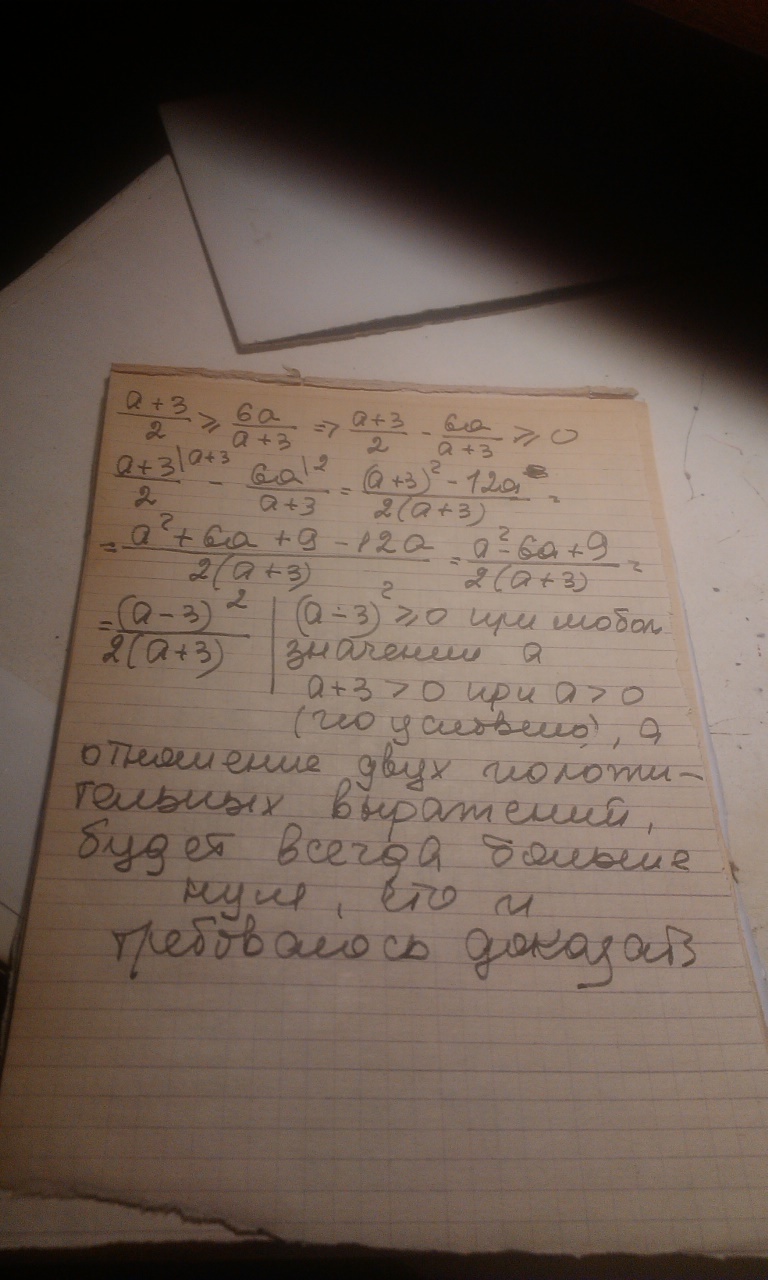 a+3/2 ≥ 6a/a+3 => a+3/2 - 6a/a+3 ≥ 0
a+3|a+3/2 - 6a|2/a+3 = (a+3)² - 12a/2(a+3) =
= a² + 6a + 9 - 12a/2(a+3) = a² - 6a + 9/2(a+3) =
= (a-3)²/2(a+3) | (a-3)² ≥ 0 при любом
значении a
a+3 > 0 при a > 0
(по условию), а
отношение двух положи-
тельных выражений,
будет всегда больше
нуля, что и
требовалось доказать